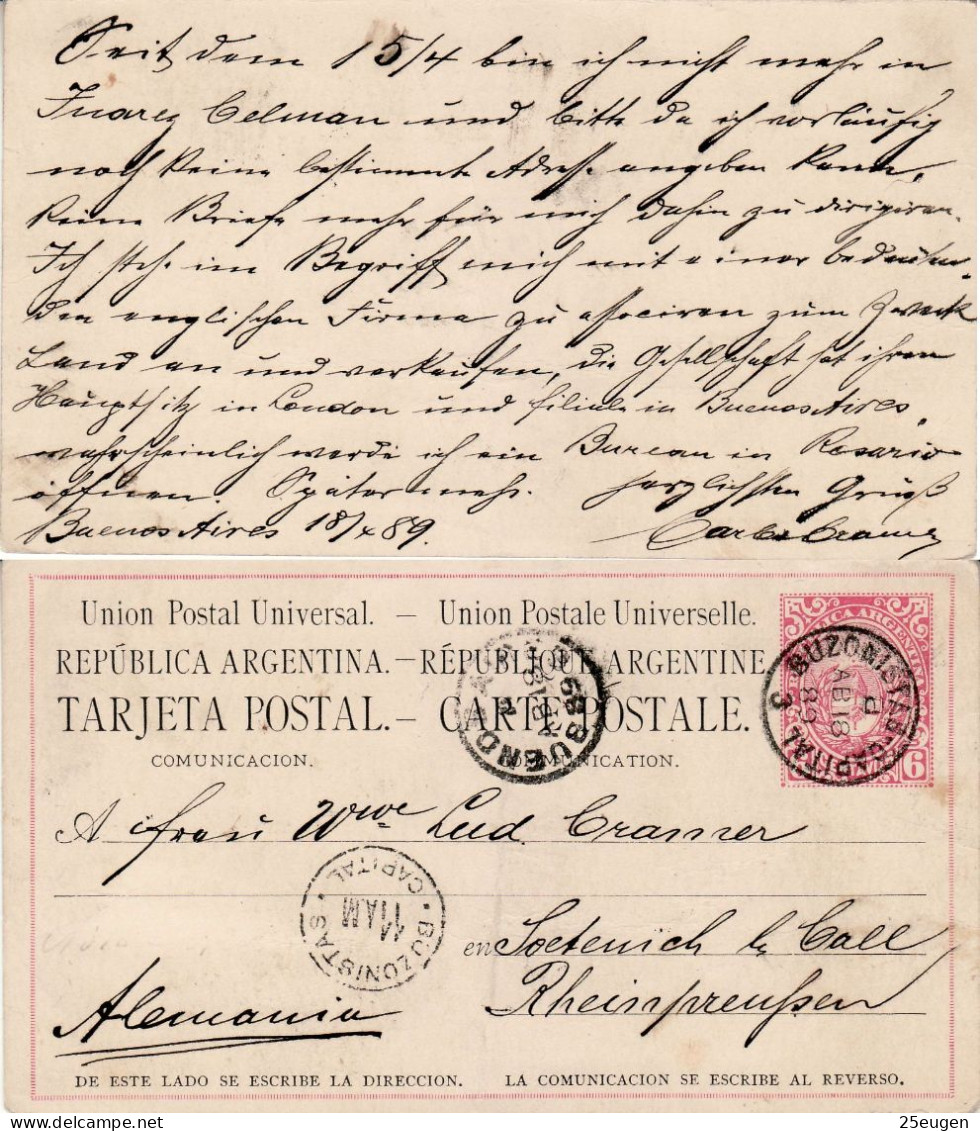 Seit dem 15/4 bin ich nicht mehr in
Juarez Celman und bitte da ich vorläufig
noch keine bestimmte Adresse angeben kann,
keine Briefe mehr für mich dahin zu dirigiren.
Ich stehe im Begriff mich mit einer bedeuten-
den englischen Firma zu associren zum Zweck
Land an und verkaufen, die Gesellschaft hat ihren
Hauptsitz in London und filiale in Buenos Aires,
wahrscheinlich werde ich ein Bureau in Rosario
öffnen. Später mehr. herzlichsten Gruß
Buenos Aires 18/4 89. Carlos Cramer
Union Postal Universal. — Union Postale Universelle.
REPÚBLICA ARGENTINA. — RÉPUBLIQUE ARGENTINE
TARJETA POSTAL. — CARTE POSTALE.
COMUNICACION. COMMUNICATION.
BUZONISTAS CAPITAL
AB 18
89
3
6
BUENO
AB 18
89
A Frau Wwe Lud. Cramer
BUZONISTAS · CAPITAL ·
11 AM
en Soetenich b/ Call
Rheinpreußen
Alemania
DE ESTE LADO SE ESCRIBE LA DIRECCION. LA COMUNICACION SE ESCRIBE AL REVERSO.
25eugen